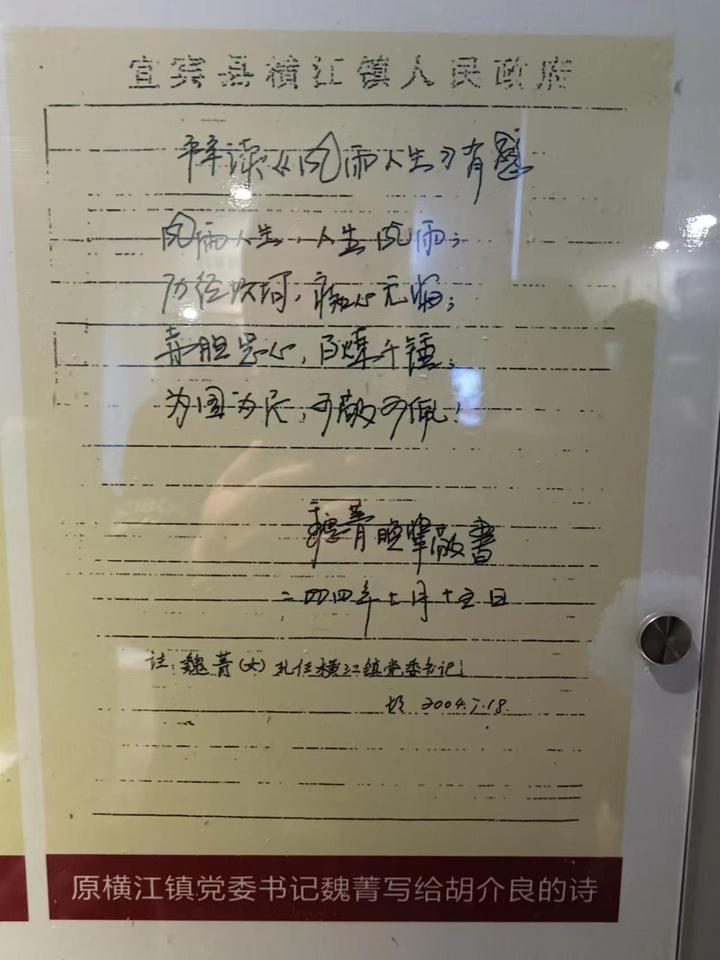 宜宾县横江镇人民政府
拜读《风雨人生》有感
风雨人生,人生风雨;
历经坎坷,痴心无悔;
赤胆忠心,百炼千锤;
为国为民,可敬可佩!
魏菁晚辈敬书
二〇〇四年七月十五日
注:魏菁(女)现任横江镇党委书记
2004.7.18.
原横江镇党委书记魏菁写给胡介良的诗